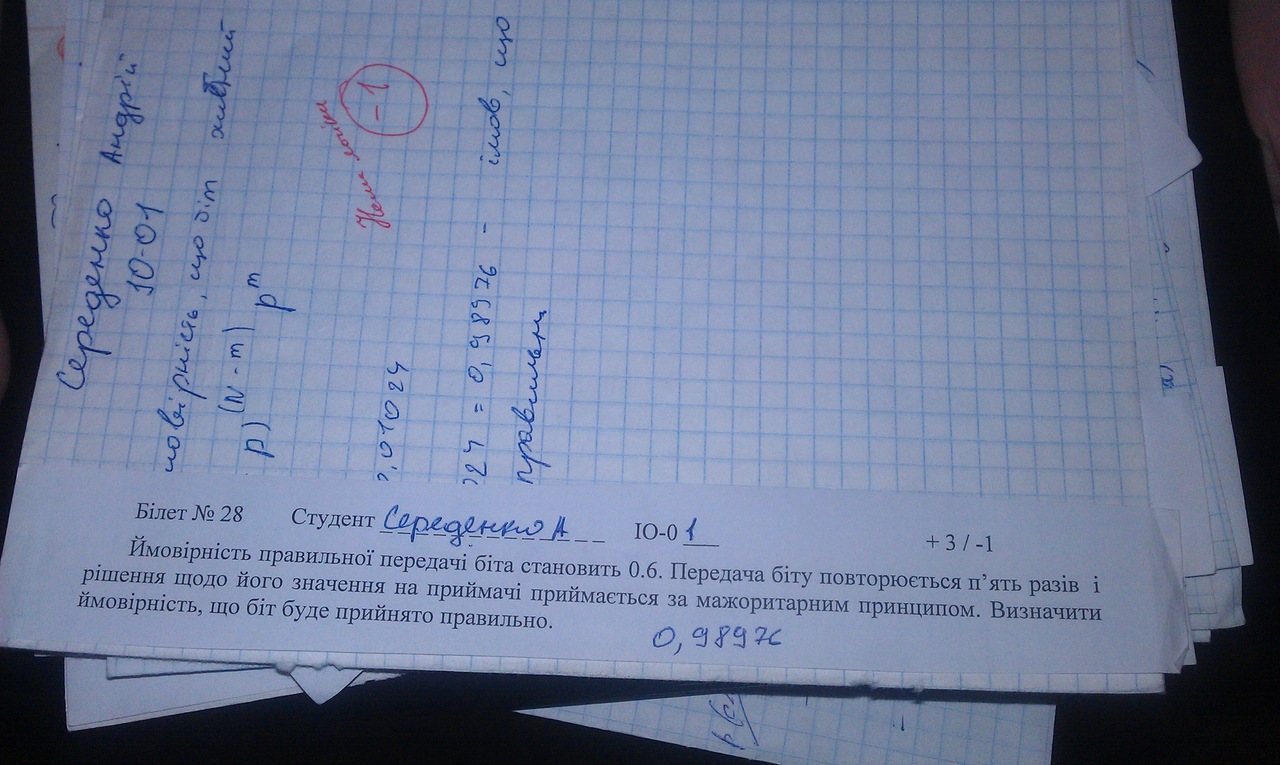 Середенко Андрій
ІО-01
мовірність, що біт хибний
p) (N-m) p^m
Нема
-1
,01024
24 = 0,98976 - імов, що
Білет № 28 Студент Середенко А ІО-0 1 + 3 / -1
Ймовірність правильної передачі біта становить 0.6. Передача біту повторюється п’ять разів і
рішення щодо його значення на приймачі приймається за мажоритарним принципом. Визначити
ймовірність, що біт буде прийнято правильно.
0,98976